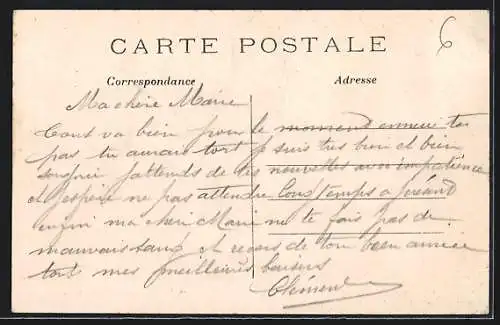 6
CARTE POSTALE
Correspondance
Adresse
Ma chère Marie
tout va bien pour le moment ennuie toi
pas tu aurais tort je suis très bien et bien
j'attends de tes nouvelles avec impatience
et j'espère ne pas attendre longtemps a présent
enfin ma cheri Marie ne te fais pas de
mauvais sang et recois de ton bien aimée
tout mes meilleures baisers
Clément